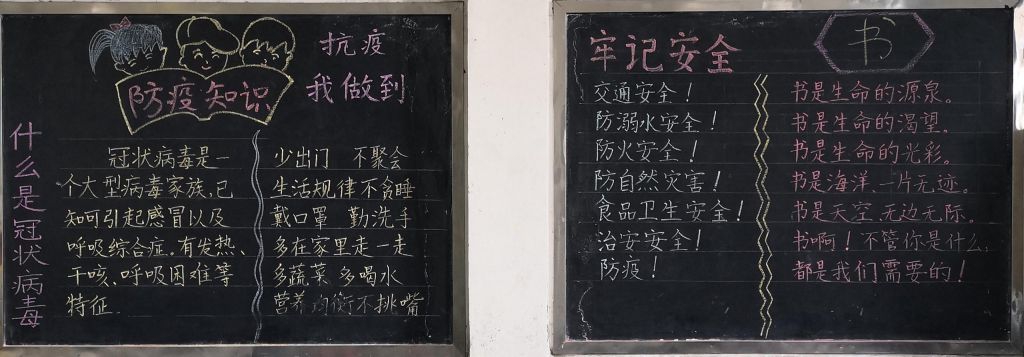 防疫知识
抗疫
我做到
什么是冠状病毒
冠状病毒是一
个大型病毒家族,已
知可引起感冒以及
呼吸综合症,有发热、
干咳、呼吸困难等
特征.
少出门 不聚会
生活规律不贪睡
戴口罩 勤洗手
多在家里走一走
多蔬菜 多喝水
营养均衡不挑嘴
牢记安全
交通安全!
防溺水安全!
防火安全!
防自然灾害!
食品卫生安全!
治安安全!
防疫!
书
书是生命的源泉。
书是生命的渴望。
书是生命的光彩。
书是海洋、一片无迹。
书是天空、无边无际。
书啊!不管你是什么,
都是我们需要的!